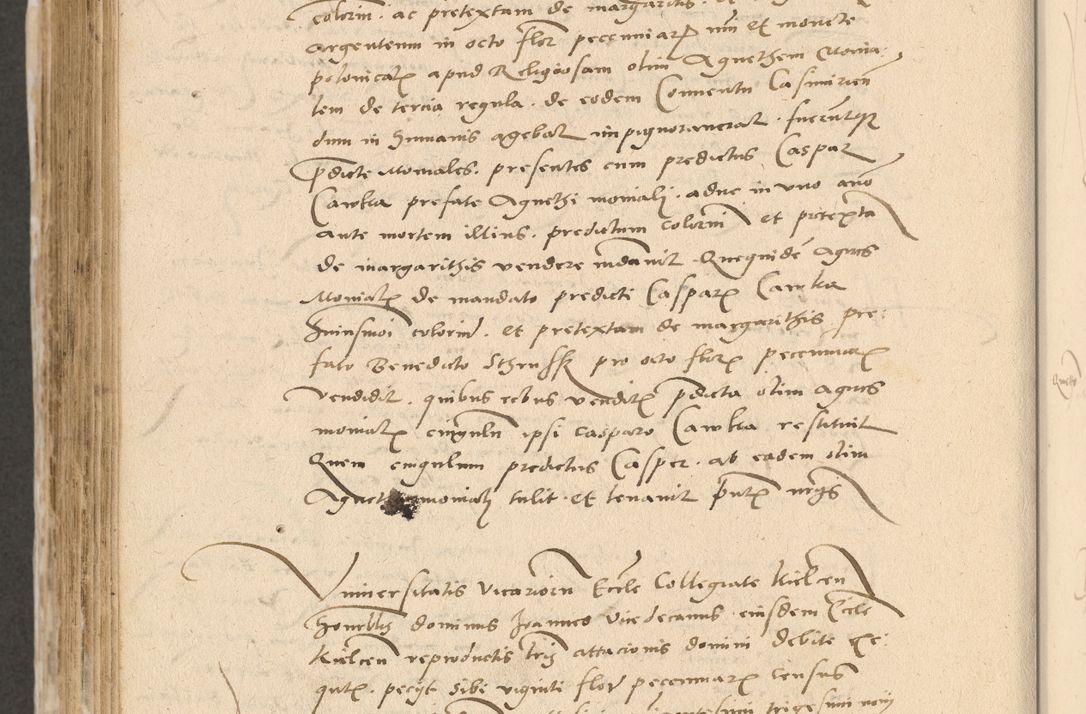 colorin. ac pretextam de margaritis. et
argenteum in octo flor pecuniarum nri et monete
polonicalis apud Religiosam olim Agnethem Monia:
lem de tercia regula. de eodem Conventu Casimirien
dum in humanis agebat impignoraverat. fueruntque
predicte Moniales. presentes cum predictus Caspar
Cawka prefate Agnethi moniali. aduc in uno anno
ante mortem illius. predictum colorin et pretexta
de margarithis vendere mandavit. Quequidem Agnes
Monialis de mandato predicti Casparis Cawka
huiusmoi colorin. et pretextam de margarithis pre:
fato Benedicto pro octo floris pecuniarum
vendidit. quibus rebus venditis predicta olim Agnes
monialis cingulum ipsi Casparo Cawka restituit
Quem cingulum predictus Casper. ab eadem olim
moniali tulit. et levavit pntis

Universitatis Vicariorum Eccle Collegiate Kielcen
honorblis dominus Joannes Vicedecanus eiusdem Eccle
Kielcen reproductis lris citacionis domini debite exe:
qutis. pecijt sibi viginti flor pecuniarum census
trigesimi novi